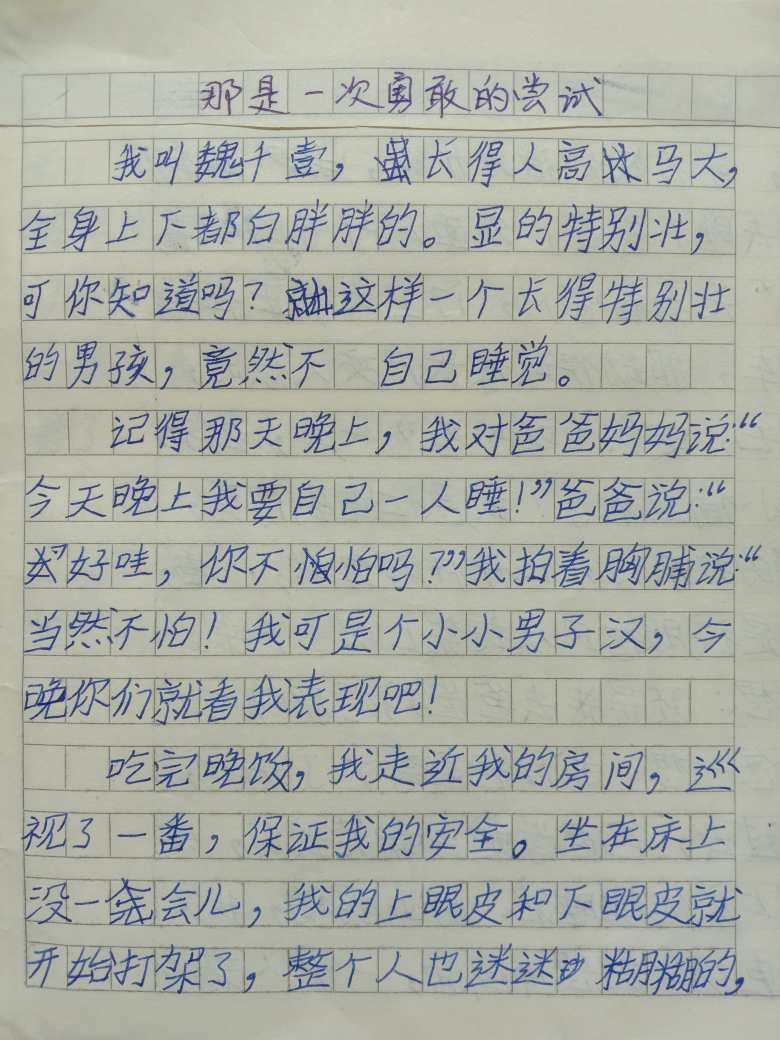 那是一次勇敢的尝试
我叫魏千壹，长得人高马大，
全身上下都白胖胖的。显的特别壮，
可你知道吗？就这样一个长得特别壮
的男孩，竟然不 自己睡觉。
记得那天晚上，我对爸爸妈妈说：“
今天晚上我要自己一人睡！”爸爸说：“
好哇，你不怕怕吗？”我拍着胸脯说：“
当然不怕！我可是个小小男子汉，今
晚你们就看我表现吧！
吃完晚饭，我走近我的房间，巡
视了一番，保证我的安全。坐在床上
没一会儿，我的上眼皮和下眼皮就
开始打架了，整个人也迷迷糊糊的，